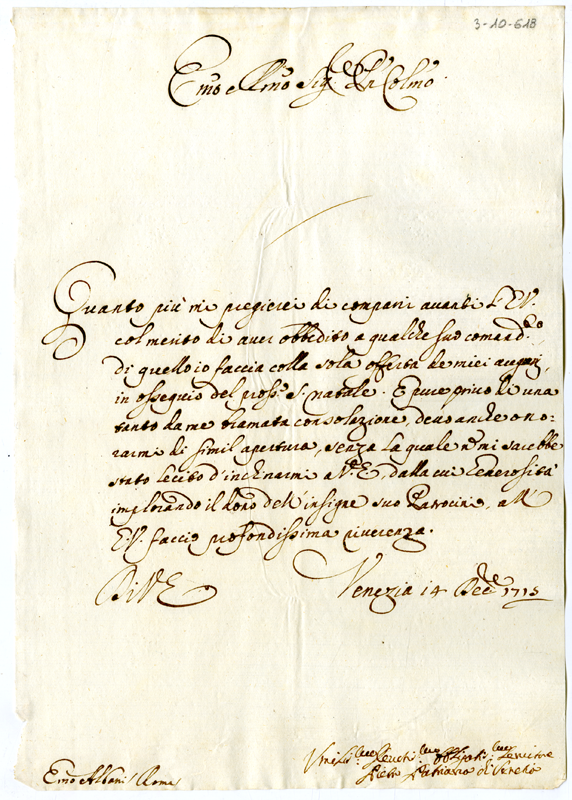 3-10-618
Emo e Rmo Sig.re Pñ Colmo
Quanto più mi pregierei di comparir avanti l'E.V.
col merito di aver obbedito a qualche suo comand.o
di quello io faccia colla sola offerta de miei augurj,
in ossequio del pross.o S. Natale. E pure privo di una
tanto da me bramata consolazione, devo anche ono-
rarmi di simil apertura, senza la quale nõ mi sarebbe
stato lecito d'inchinarmi a V.E., dalla cui Generosità
implorando il dono dell'insigne suo Patrocinio, all'
E.V. faccio profondissima riverenza.
Di V.E.
Venezia 14 Xcc.bre 1715
Emo Albani Roma
Umiliss.mo Devotiss.mo Obligatiss.mo Servitore
Pietro Patriarca di Venezia